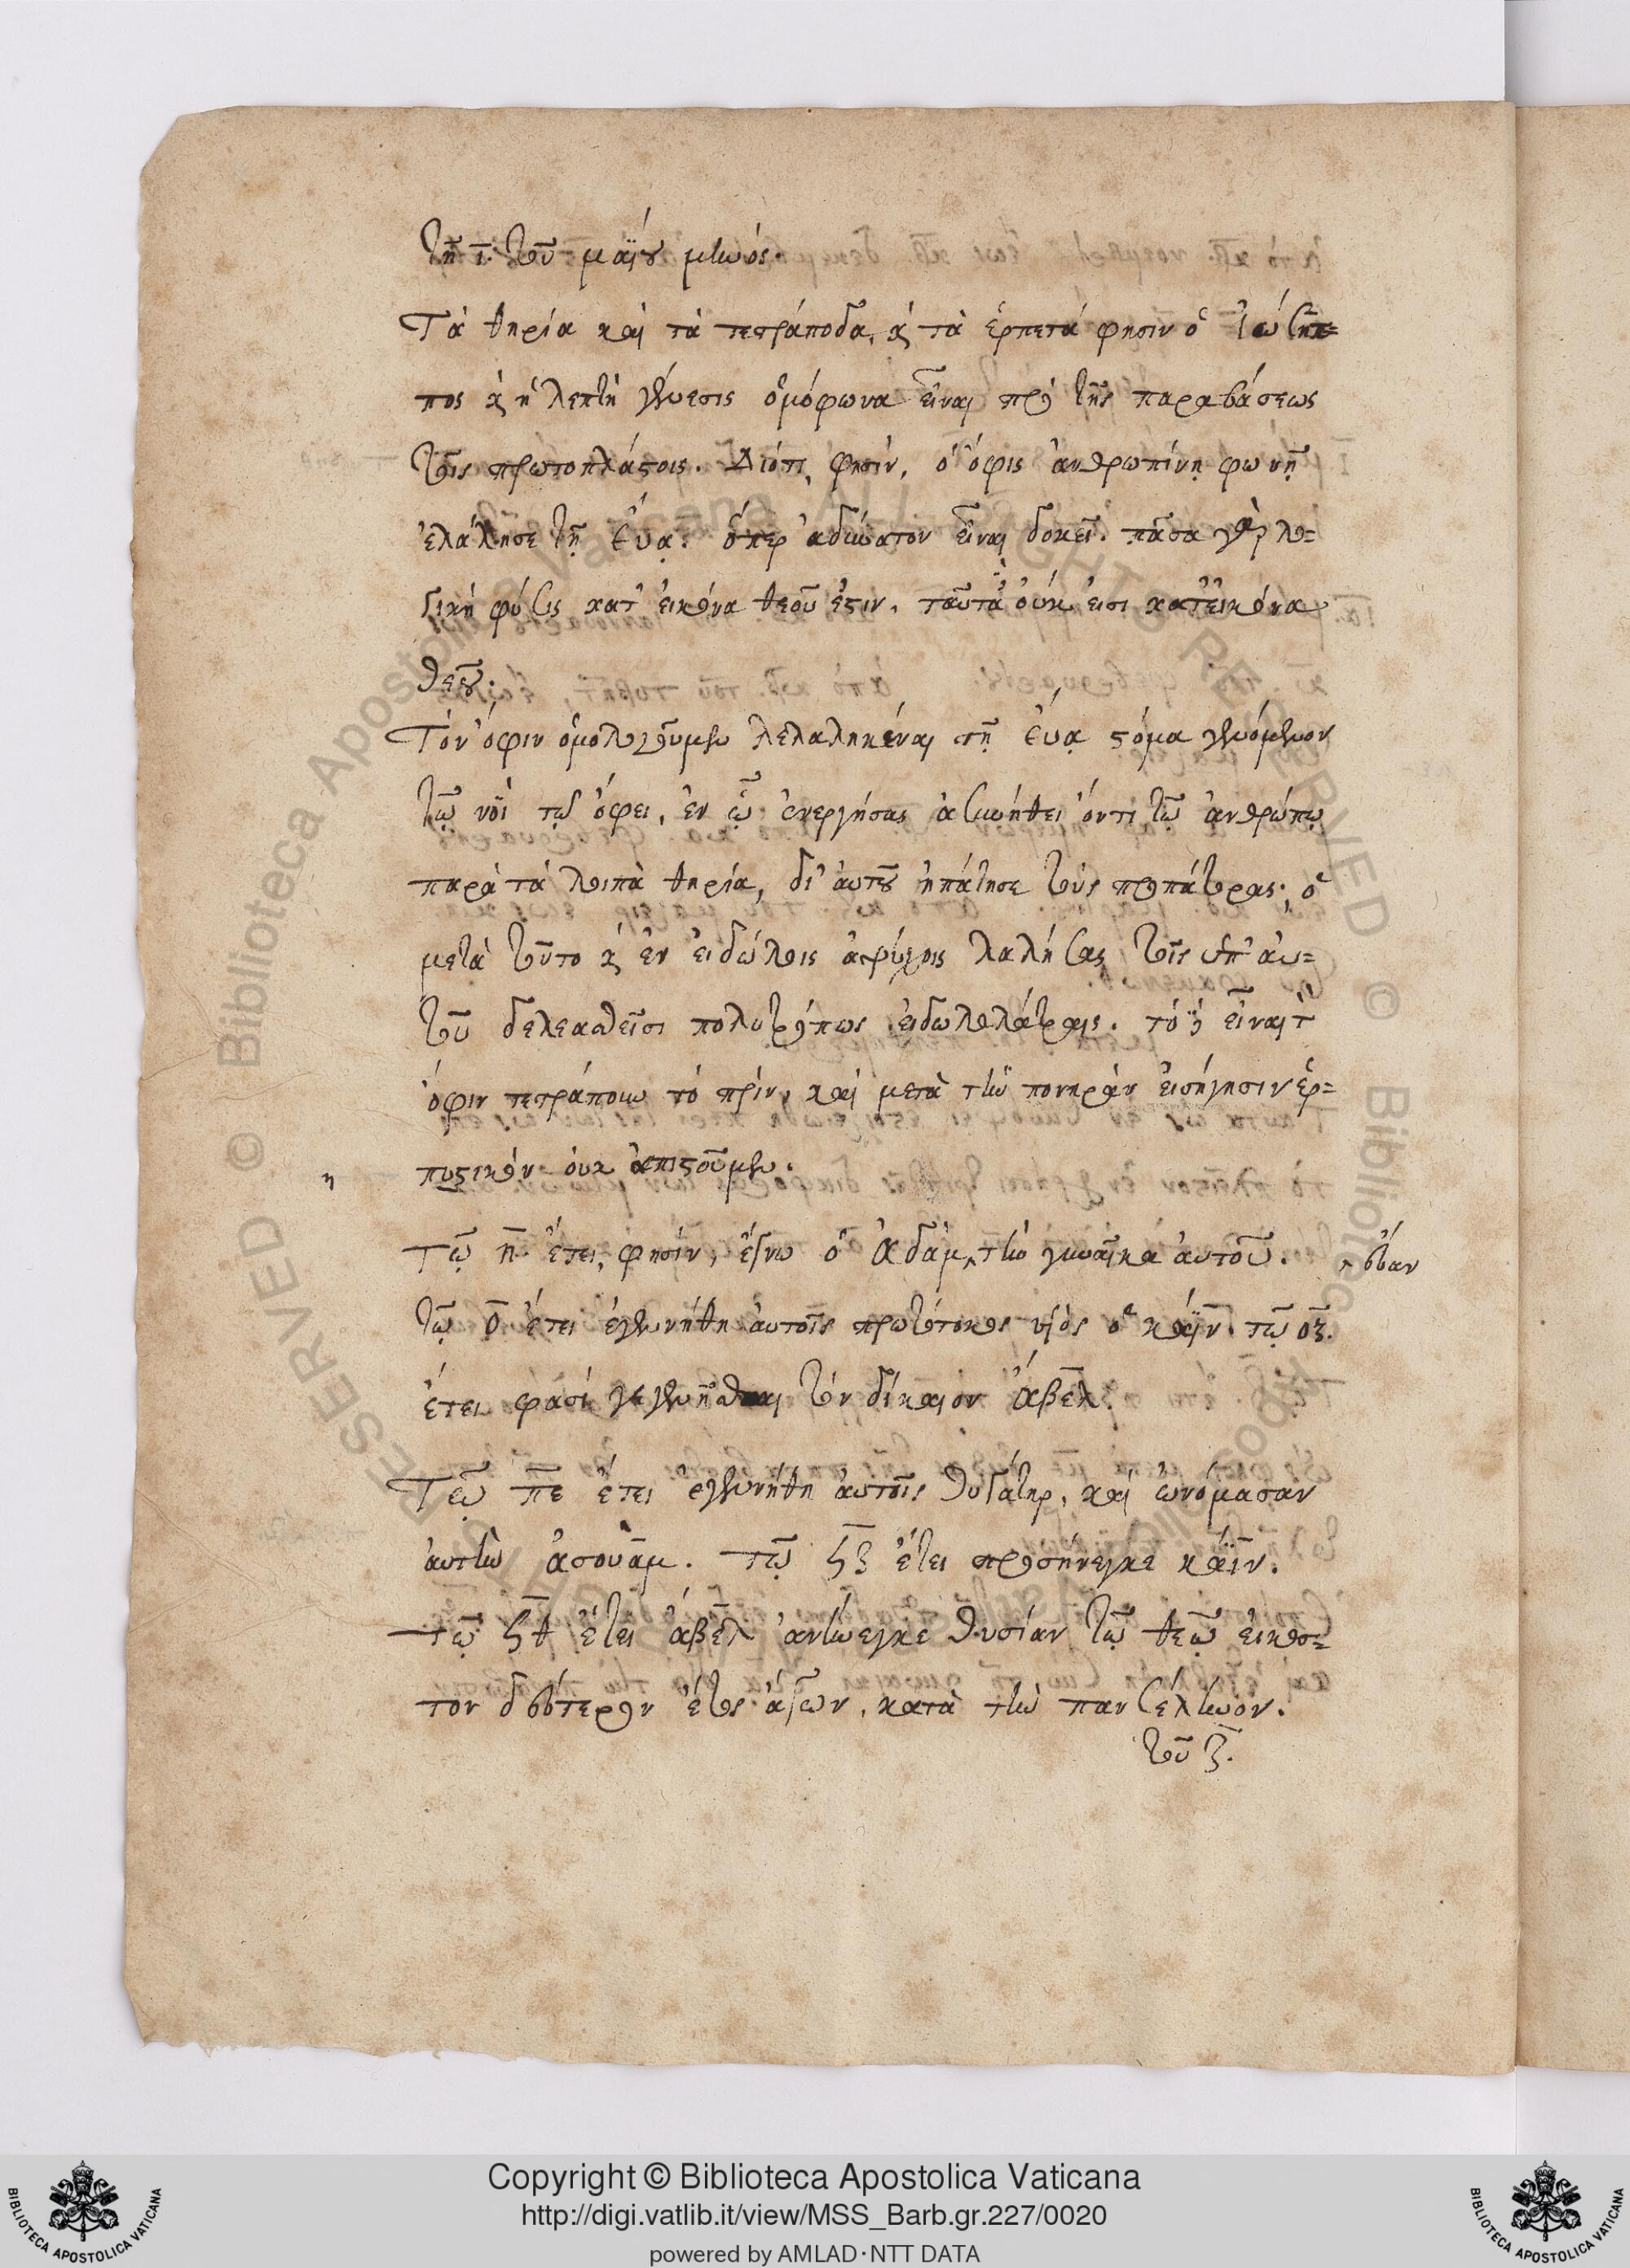 τῇ ι̅. τοῦ μαΐου μηνός.
Τὰ θηρία καὶ τὰ τετράποδα, ϗ τὰ ἑρπετά φησιν ὁ Ἰώσηπ=
πος ϗ ἡ λεπτὴ γένεσις ὁμόφωνα εἶναι πρὸ τῆς παραβάσεως
τοῖς πρωτοπλάστοις. Διότι, φησίν, ὁ ὄφις ἀνθρωπίνῃ φωνῇ
ἐλάλησε τῇ Εὔᾳ. ὅπερ ἀδύνατον εἶναι δοκεῖ. πᾶσα γὰρ λο=
γικὴ φύσις κατ' εἰκόνα θεοῦ ἐστιν. ταῦτα οὐκ εἰσι κατ' εἰκόνα
θεοῦ.
Τὸν ὄφιν ὁμολογοῦμεν λελαληκέναι τῇ εὔᾳ στόμα γενόμενον
τῷ νοῒ τῷ ὄφει, ἐν ᾧ ἐνεργήσας ἀσυνήθει ὄντι τῷ ἀνθρώπῳ
παρὰ τὰ λοιπὰ θηρία, δι' αὐτοῦ ἠπάτησε τοὺς προπάτορας· ὁ
μετὰ τοῦτο ϗ ἐν εἰδώλοις ἀψύχοις λαλήσας τοῖς ὑπ' αὐ=
τοῦ δελεασθεῖσι πολυτρόπως εἰδωλολάτραις. τὸ δὲ εἶναι τ
ὄφιν τετράπουν τὸ πρίν, καὶ μετὰ τὴν πονηρὰν εἰσήγησιν ἑρ=
πυστικὸν οὐκ ἀπιστοῦμεν.
η
τῷ η̅ ἔτει, φησίν, ἔγνω ὁ Ἀδάμ ‸ τὴν γυναῖκα αὐτοῦ. ‸ εὔαν
τῷ ο̅ ἔτει ἐγεννήθη αὐτοῖς πρωτότοκος υἱὸς ὁ κάϊν. τῷ οζ.
ἔτει φασὶ γεγεννῆσθαι τὸν δίκαιον ἄβελ.
Τῷ πε ἔτει ἐγεννήθη αὐτοῖς θυγάτηρ, καὶ ὠνόμασαν
αὐτὴν ἀσουάμ. τῷ ϟζ ἔτει προσήνεγκε κάϊν.
τῷ ϟθ ἔτει ἄβελ ἀνήνεγκε θυσίαν τῷ θεῷ εἰκοσ=
τὸν δεύτερον ἔτος ἄγων, κατὰ τὴν πανσέληνον.
τοῦ ζ̅.
Copyright © Biblioteca Apostolica Vaticana
http://digi.vatlib.it/view/MSS_Barb.gr.227/0020
powered by AMLAD·NTT DATA
BIBLIOTECA APOSTOLICA VATICANA
BIBLIOTECA APOSTOLICA VATICANA